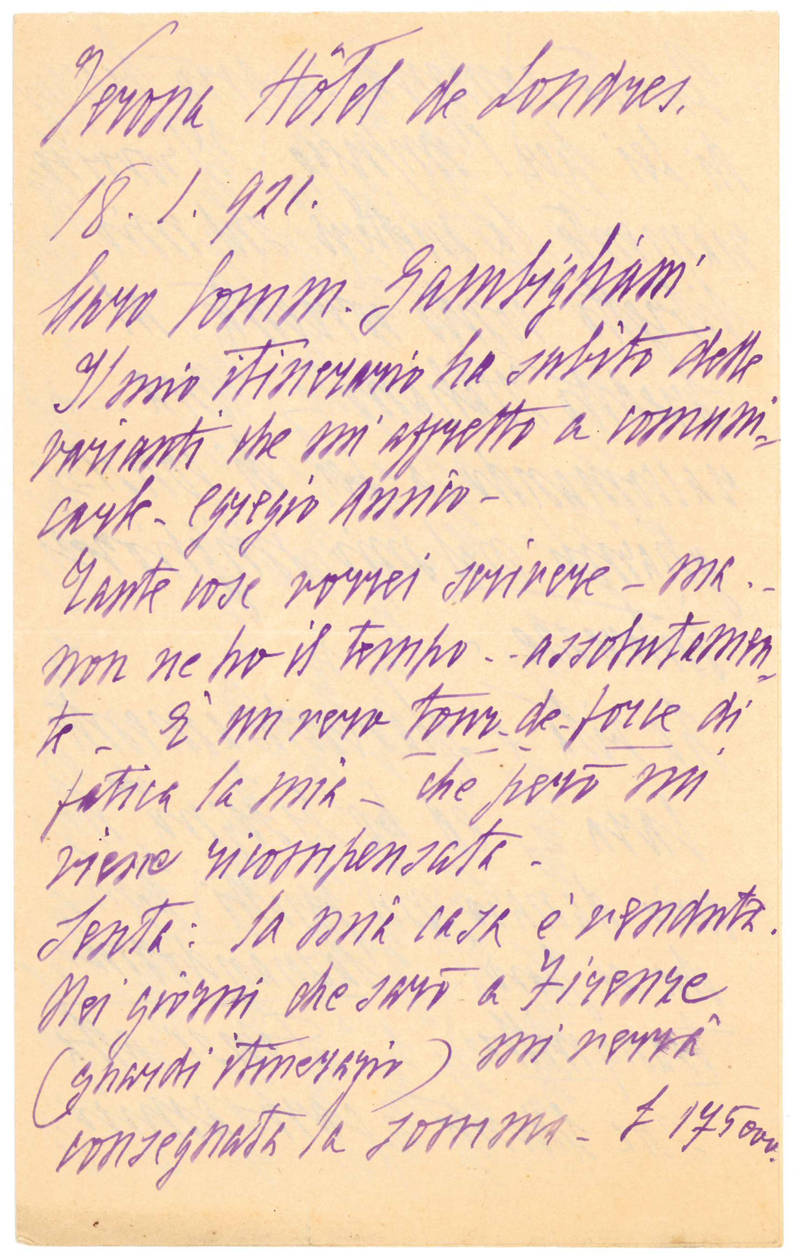 Verona Hôtel de Londres.
18. 1. 921.
Caro Comm. Gambigliani
Il mio itinerario ha subito delle
varianti che mi affretto a comuni=
carle - egregio Amico -
Tante cose vorrei scrivere - ma. -
non ne ho il tempo - - assolutamen=
te - È un vero tour-de-force di
fatica la mia - che però mi
viene ricompensata -
Senta: la mia casa è venduta.
Nei giorni che sarò a Firenze
(guardi itinerario) mi verrà
consegnata la somma - £ 175000.